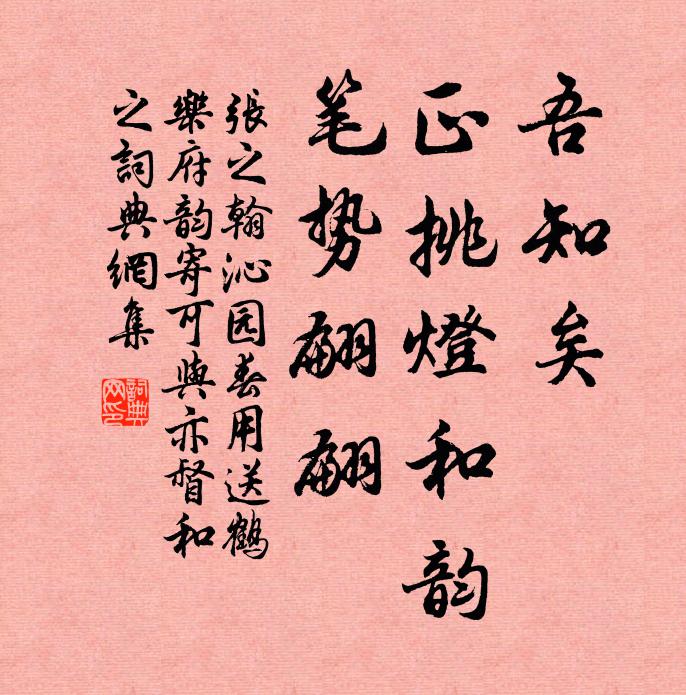 吾知矣
正挑燈和韵
笔势翩翩
張之翰沁园春用送鶴
樂府韵寄可與亦督和
之詞典網集
詞典
网印